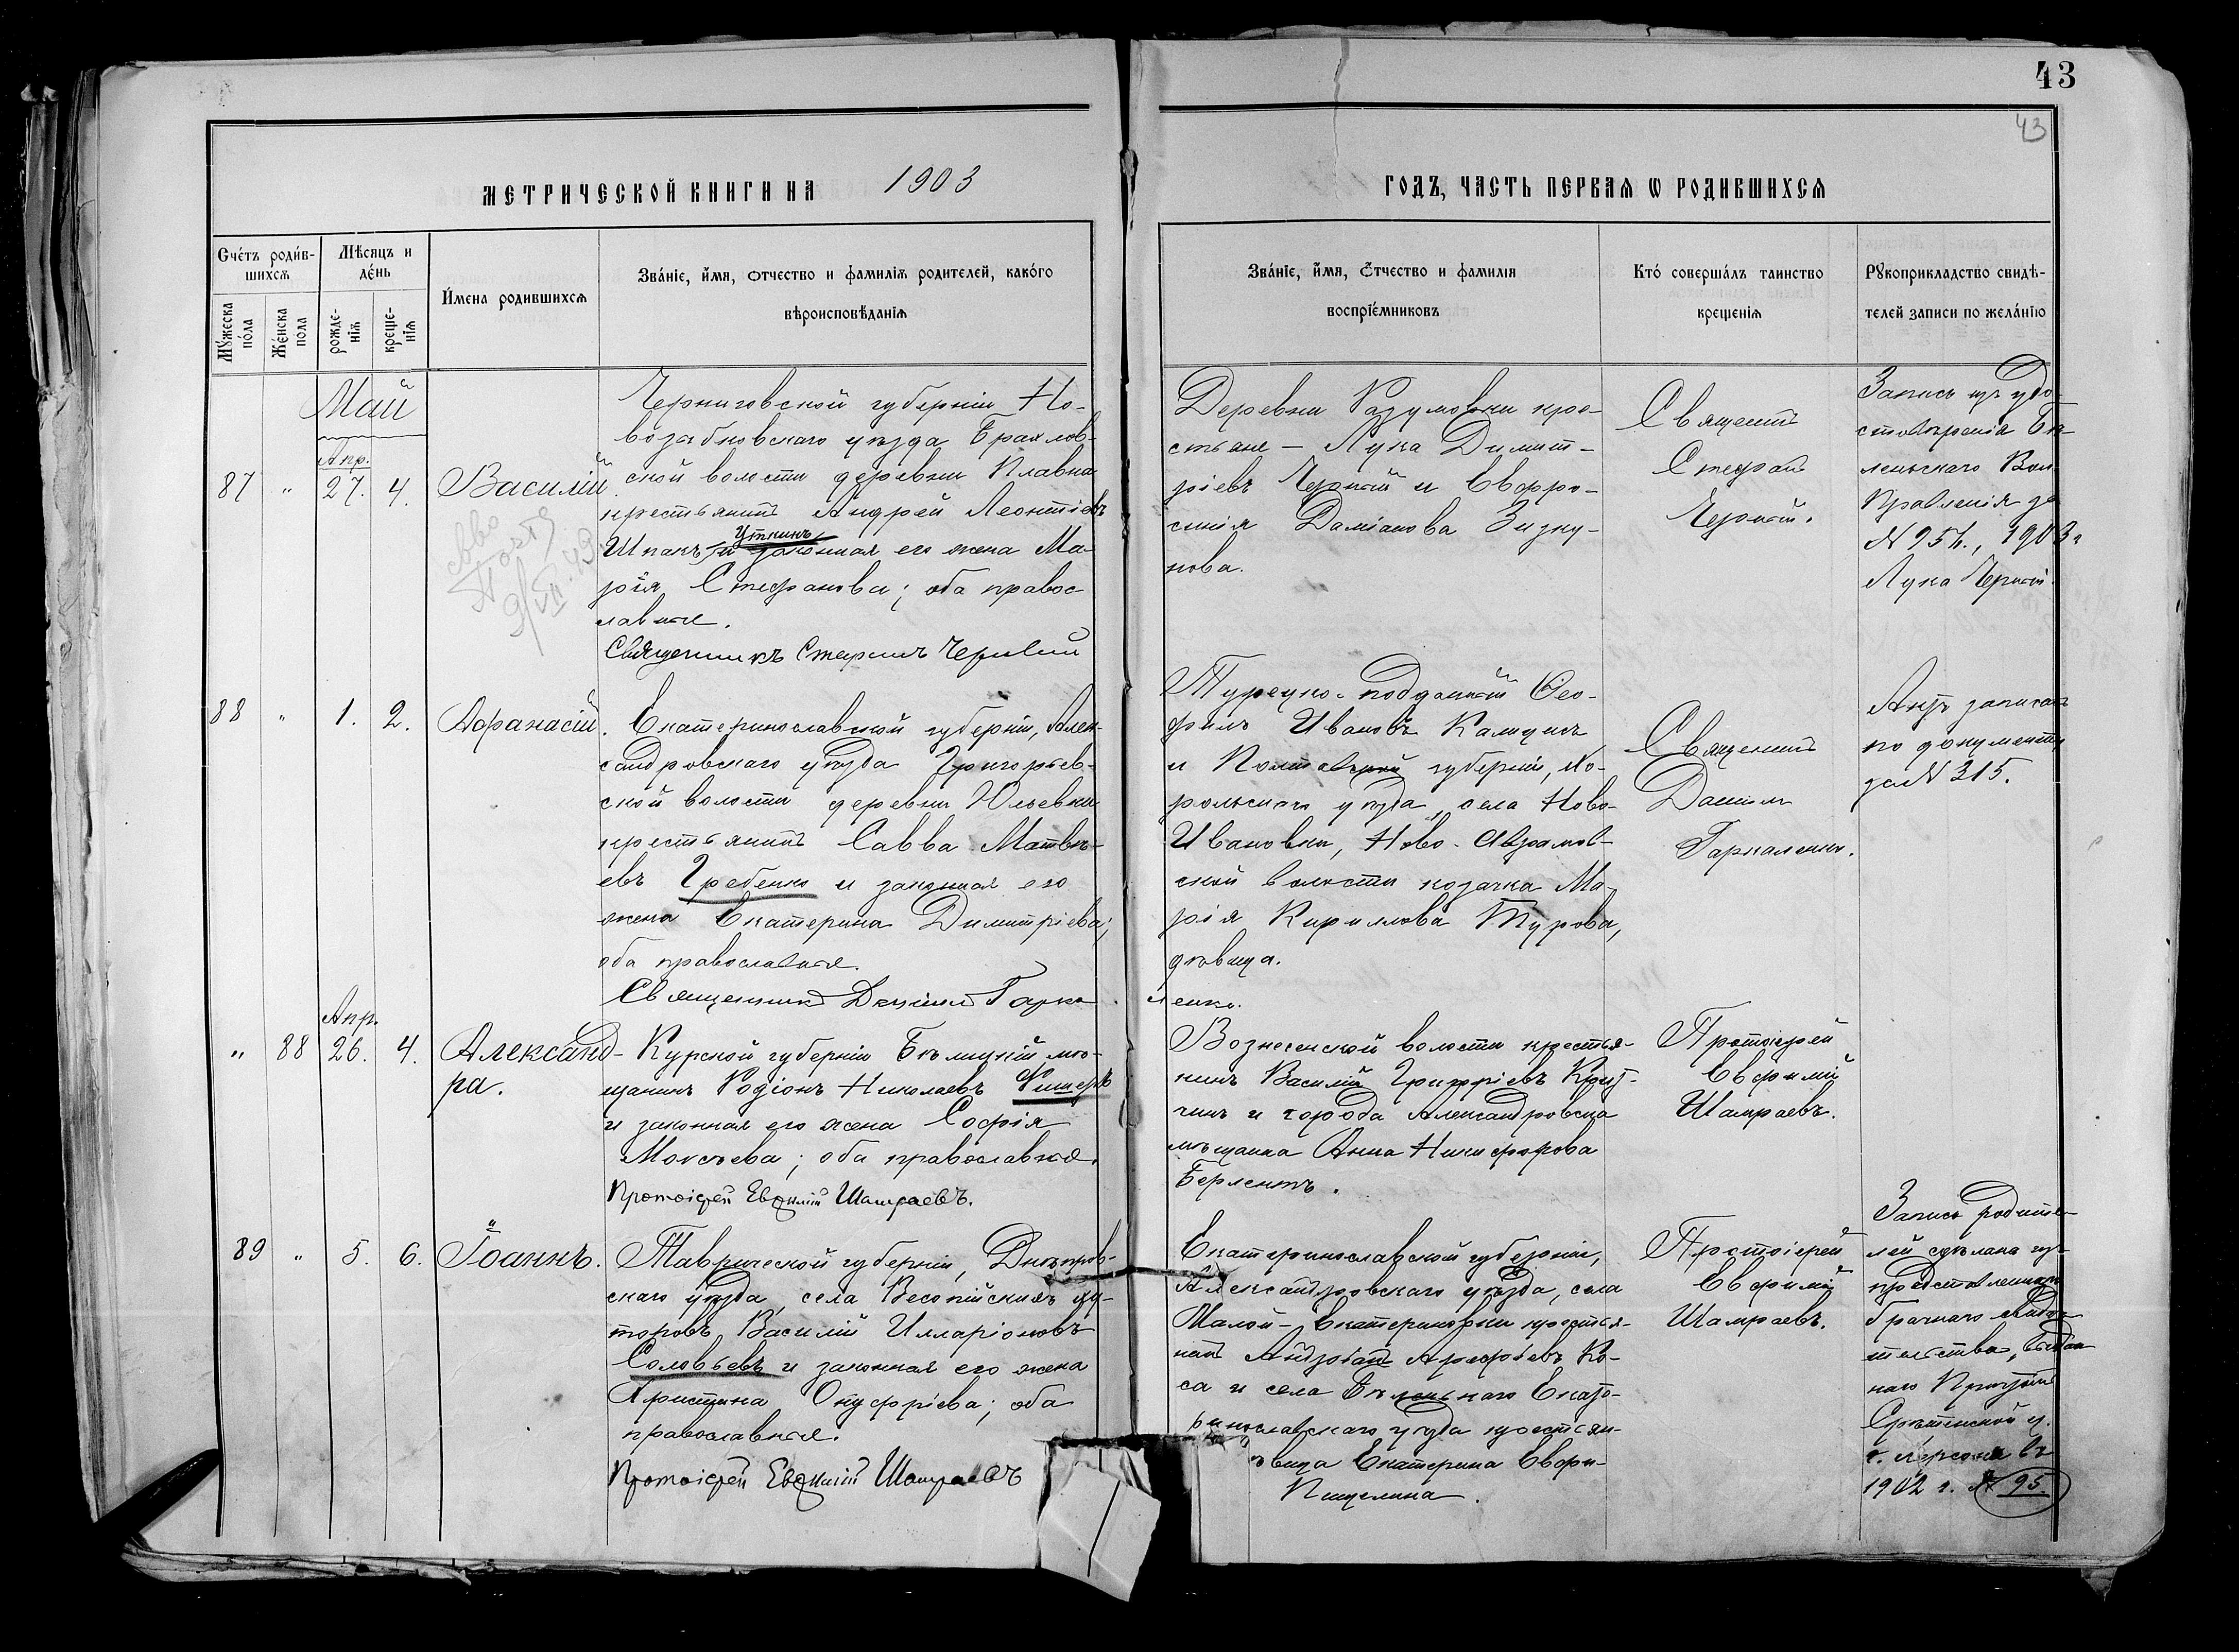 43
43
МЕТРИЧЕСКОЙ КНИГИ НА 1903
ГОДЪ, ЧАСТЬ ПЕРВАЯ Ѡ РОДИВШИХСЯ
Счетъ родив-
шихся
Мѣсяцъ и
день
Мужеска
пола
Женска
пола
рожде-
нія
креще-
нія
Имена родившихся
Званіе, имя, отчество и фамилія родителей, какого
вѣроисповѣданія
Званіе, имя, отчество и фамилія
воспріемниковъ
Кто совершалъ таинство
крещенія
Рукоприкладство свидѣ-
телей записи по желанію
Май
Апр.
87 " 27. 4. Василій
Черниговской губерніи Но-
возыбковскаго уѣзда Брахлов-
ской волости деревни Плавна
крестьянинъ Андрей Леонтіевъ
Уткинъ
Шпакъ и законная его жена Ма-
рія Стефанова; оба правос
лавные.
Священникъ Стефанъ Черный
Деревни Разумовки кре-
стьяне — Лука Димит-
ріевъ Черный и Евфро-
синія Даміанова
нова.
Священникъ
Стефанъ
Черный.
Запись изъ удо-
стовѣренія Бѣ-
леньскаго Вол.
Правленія за
1903 г
Лука Черный.
88 " 1. 2. Афанасій.
Екатеринославской губерніи, Алек-
сандровскаго уѣзда Григорьев-
ской волости деревни Юльевки
крестьянинъ Савва Матвѣ-
евъ Гребенко и законная его
жена Екатерина Димитріева;
оба православные.
Священникъ Даніилъ Гарка
ленко.
Турецко-подданный Ѳео-
филъ Ивановъ
и Полтавской губерніи, Хо-
рольскаго уѣзда, села Ново-
Ивановки, Ново-Аврамов-
ской волости козачка Ма-
рія Кирилова Турова,
дѣвица.
Священникъ
Даніилъ
Гаркаленко.
Актъ записанъ
по документу
за № 315.
Апр.
" 88 26. 4. Александ-
ра.
Курской губерніи Бѣлицкій мѣ-
щанинъ Родіонъ Николаевъ Фишеръ
и законная его жена Софія
Моисѣева; оба православные.
Протоіерей Евфимій Шамраевъ.
Вознесенской волости крестья-
нинъ Василій
чинъ и города Александровска
мѣщанка Анна Никифорова
Берлентъ.
Протоіерей
Евфимій
Шамраевъ.
89 " 5. 6. Іоаннъ.
Таврической губерніи, Днѣпров-
скаго уѣзда, села ху-
торовъ Василій Илларіоновъ
Соловьевъ и законная его жена
Христина Онуфріева; оба
православные.
Протоіерей Евфимій Шамраевъ
Екатеринославской губерніи,
Александровскаго уѣзда, села
Малой-Екатериновки крестья-
нинъ Андріанъ Арефіевъ Ко-
са и села Бѣленькаго Екате-
ринославскаго уѣзда крестьян-
вица Екатерина Евфи-
Протоіерей
Евфимій
Шамраевъ.
Запись родите-
лей сдѣлана изъ
представленнаго
брачнаго свидѣ-
тельства, выдан
наго Причтомъ
Срѣтенской ц.
г. Херсона въ
1902 г. № 95.